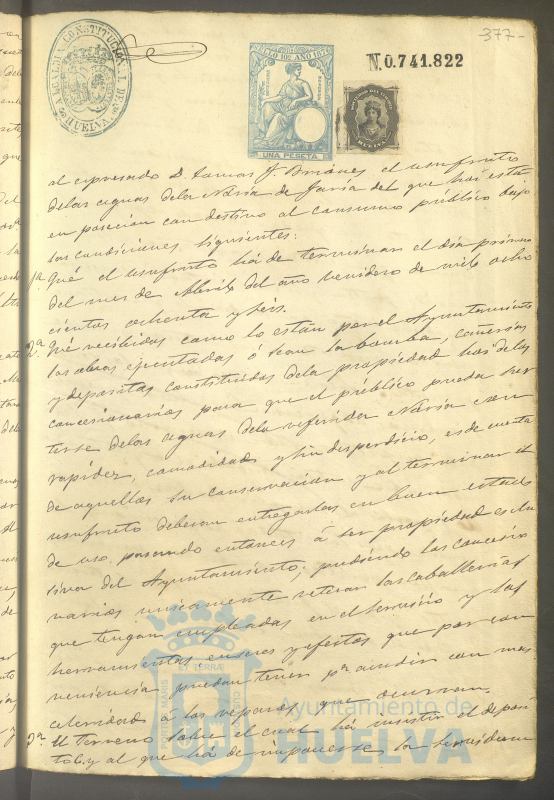 377-
ALCALDIA CONSTITUCIONAL DE HUELVA
SELLO 10º AÑO 187
UNA PESETA
N. 0.741.822
HUELVA
al espresado D. Tomas J. Briones el usufructo
de las aguas de la Noria de Jaria del que hoy está
en posesion con destino al consumo público bajo
las condiciones siguientes:
1ª Que el usufruto há de terminar el dia primero
del mes de Abril del año venidero de mil ocho
cientos ochenta y seis.
2ª Que recibidas como lo están por el Ayuntamiento
las obras ejecutadas ó sean la bomba, cañerias
y depositos constituidos de la propiedad hoy de los
concesionarios para que el público pueda sur
tirse de las aguas de la referida Noria con
rapidez, comodidad y sin desperdicio, es de cuenta
de aquellos su conservacion y al terminar el
usufruto deberan entregarlas en buen estado
de uso pasando entonces á ser propiedad esclu
siva del Ayuntamiento; pudiendo los concesio
narios unicamente retirar las caballerias
que tengan empleadas en el servicio y las
herramientas enseres y efectos que por con
veniencia puedan tener pª acudir con mas
celeridad á los reparos que ocurran.
3ª El terreno sobre el cual há de insistir el deposi
to y al que há de imponerse la servidum
PORTUS MARIS ET TERRAE CUSTODIA
Ayuntamiento de
HUELVA